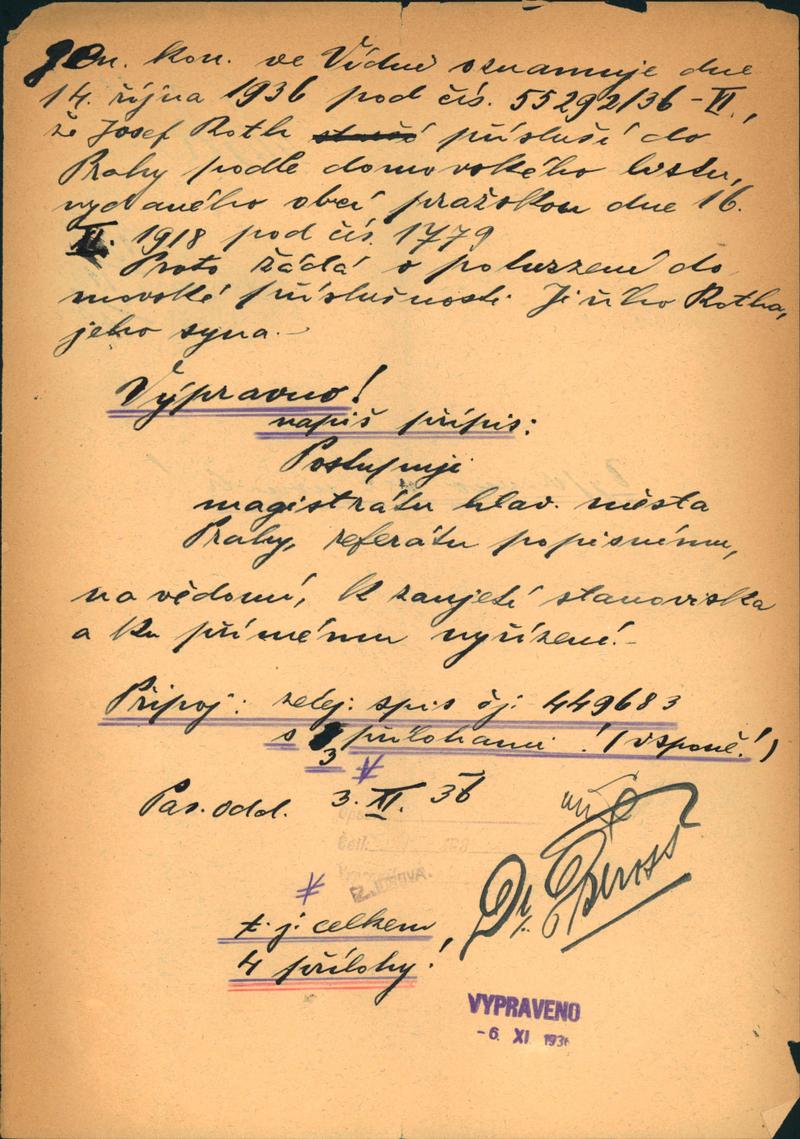 Gen. kon. ve Vídni oznamuje dne
14. října 1936 pod čís. 55292/36-VI.,
že Josef Roth přísluší do
Prahy podle domovského listu,
vydaného obcí pražskou dne 16.
II. 1918 pod čís. 1779
Proto žádá o potvrzení do
movské příslušnosti Jiřího Rotha,
jeho syna.-
Výpravno!
napiš přípis:
Postupuji
magistrátu hlav. města
Prahy, referátu popisnému,
na vědomí, k zaujetí stanoviska
a ku přímému vyřízení.-
Připoj: zdej. spis čj. 449683
s 3 přílohami! (vsponě!)
Pas. odd. 3. XI. 36
Dr.
t. j. celkem
4 přílohy!
VYPRAVENO
-6. XI 1936